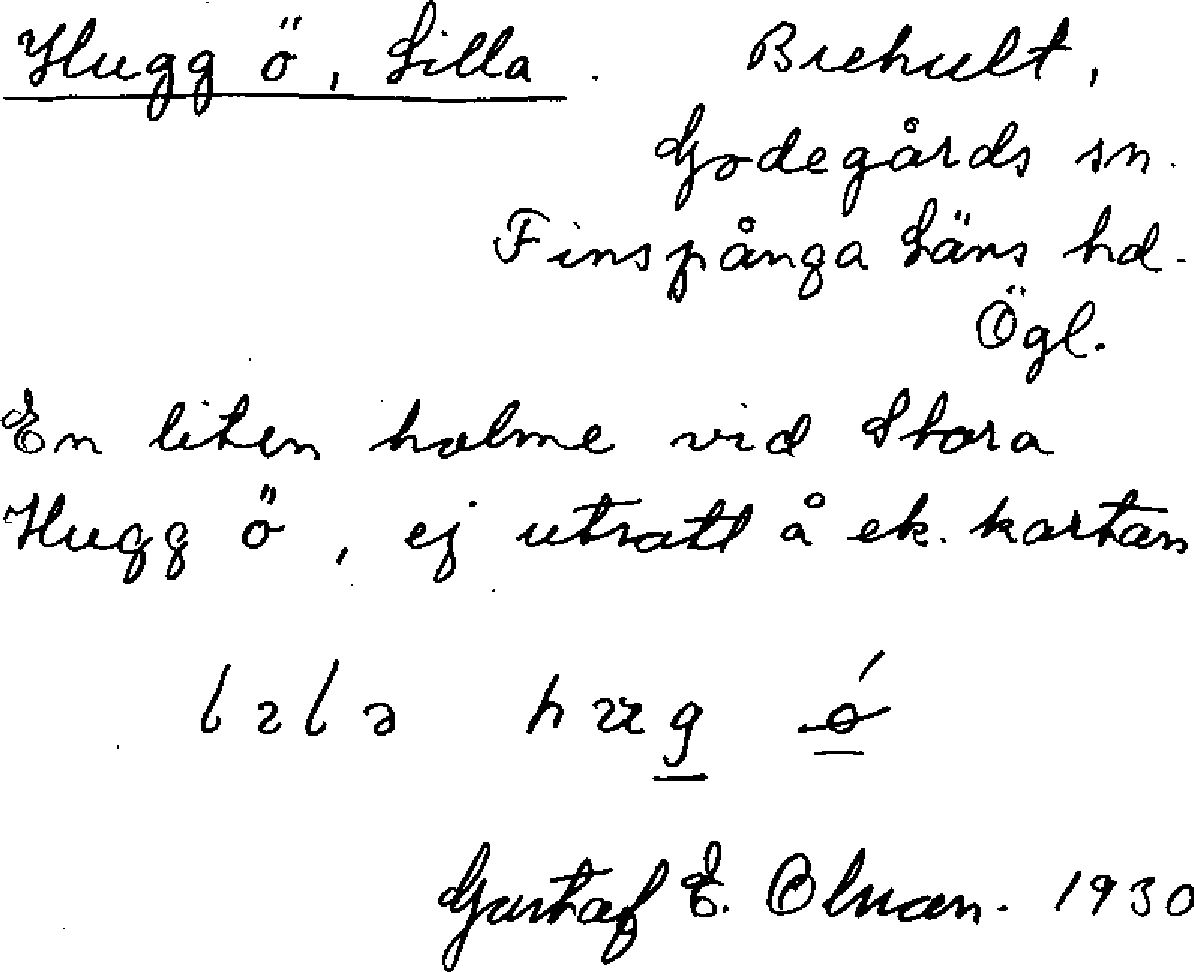 Hugg ö, Lilla. Brehult,
Godegårds sn.
Finspånga Läns hd.
Ögl.
En liten holme vid Stora
Hugg ö, ej utsatt å ek. kartan
Gustaf E. 1930